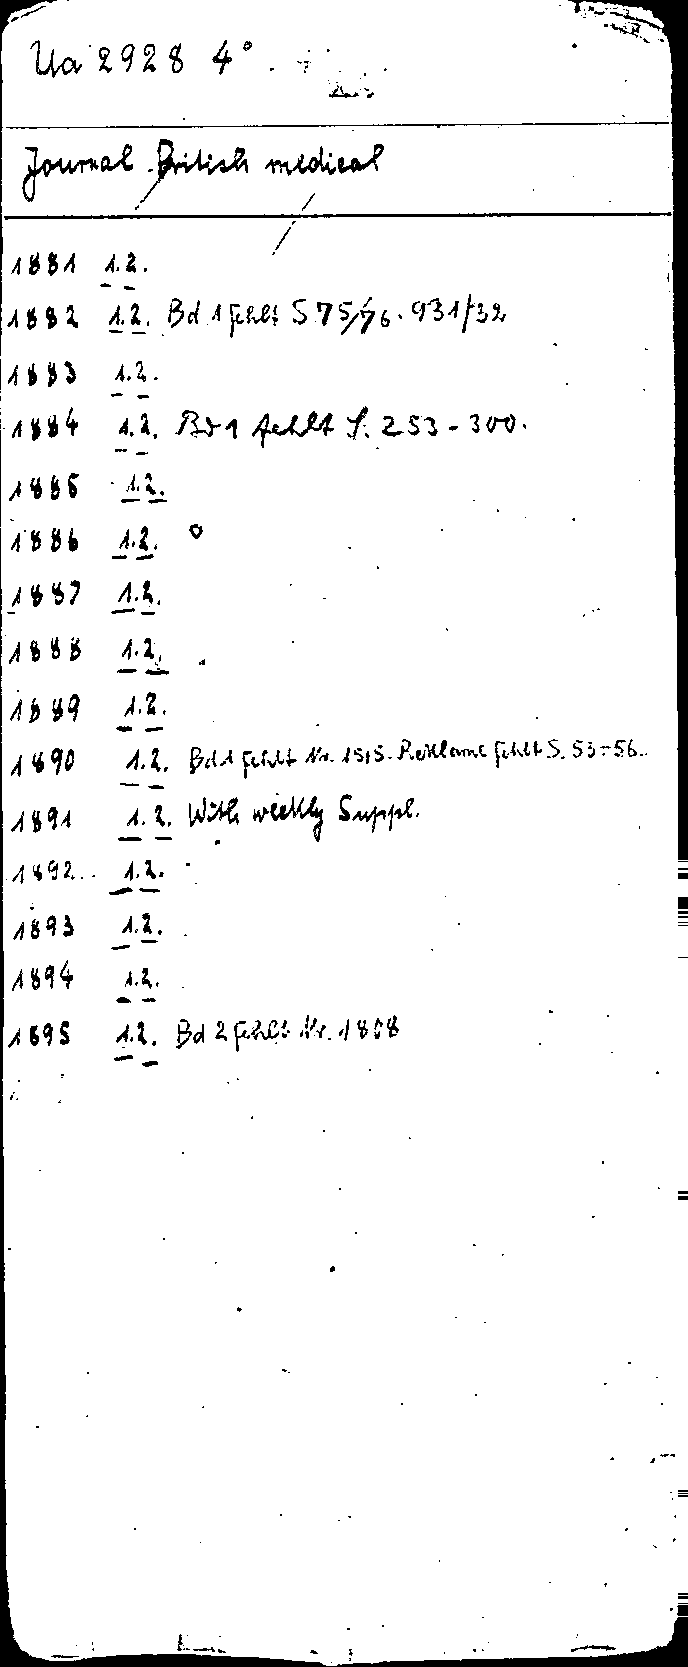 Ua 2928 4°.
Journal British medical
1881 1.2.
1882 1.2. Bd 1 fehlt S 75/76. 931/32
1883 1.2.
1884 1.2. Bd 1 fehlt S. 253-300.
1885 1.2.
1886 1.2.
1887 1.2.
1888 1.2.
1889 1.2.
1890 1.2. Bd 1 fehlt Nr. 1515. Reklame fehlt S. 53-56.
1891 1.2. With weekly Suppl.
1892 1.2.
1893 1.2.
1894 1.2.
1895 1.2. Bd 2 fehlt Nr. 1808